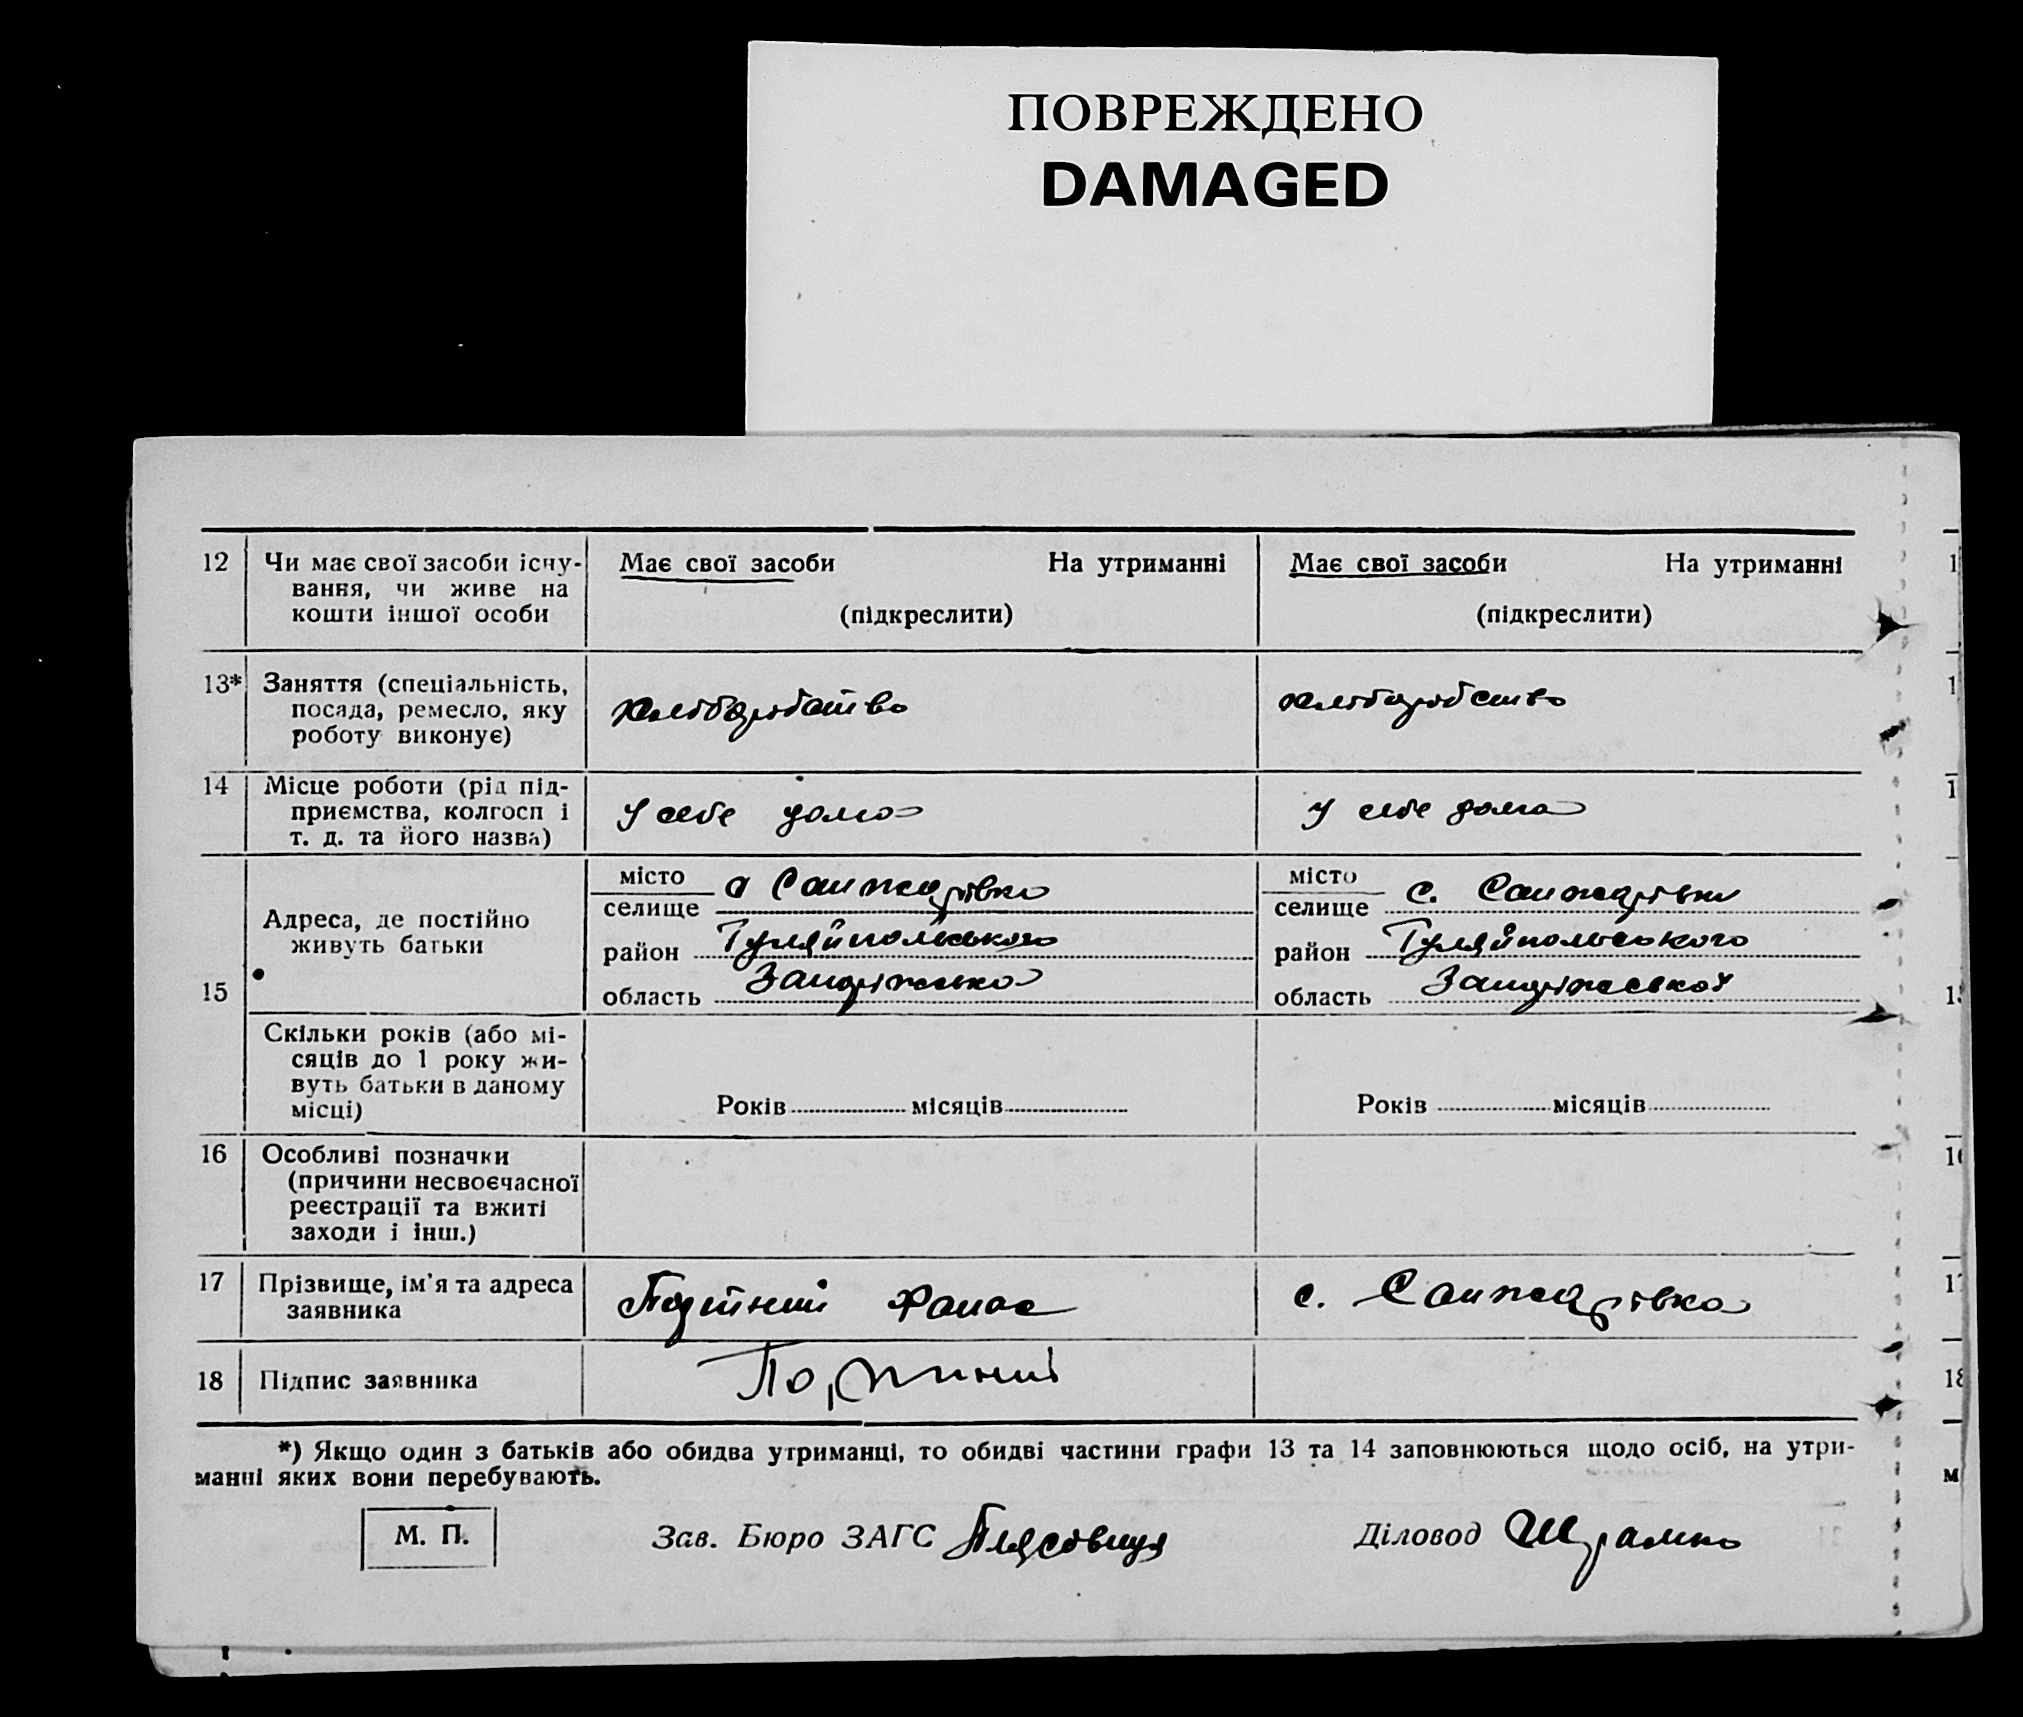 ПОВРЕЖДЕНО
DAMAGED
12 Чи має свої засоби існу-
вання, чи живе на
кошти іншої особи
Має свої засоби На утриманні
(підкреслити)
Має свої засоби На утриманні
(підкреслити)
13* Заняття (спеціальність,
посада, ремесло, яку
роботу виконує)
хліборобство
хліборобство
14 Місце роботи (рід під-
приємства, колгосп і
т. д. та його назва)
у себе дома
у себе дома
15 Адреса, де постійно
живуть батьки
місто
селище с Санжарівка
район Гуляйпольського
область Запоріжсько
місто
селище с. Санжарівки
район Гуляйпольського
область Запоріжської
Скільки років (або мі-
сяців до 1 року жи-
вуть батьки в даному
місці)
Років місяців
Років місяців
16 Особливі позначки
(причини несвоєчасної
реєстрації та вжиті
заходи і інш.)
17 Прізвище, ім'я та адреса
заявника
Портний
с. Санжарівка
18 Підпис заявника
Портний
*) Якщо один з батьків або обидва утриманці, то обидві частини графи 13 та 14 заповнюються щодо осіб, на утри-
манні яких вони перебувають.
М. П.
Зав. Бюро ЗАГС
Діловод Шрамко